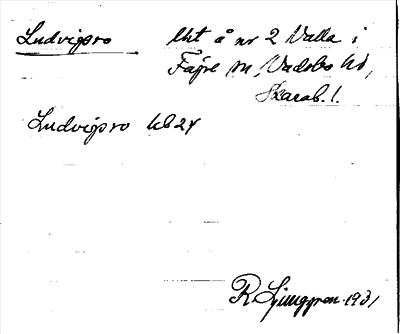 Ludvigsro lht å nr 2 Valla i
Fägre sn, Vadsbo hd,
Skarab. l.
Ludvigsro hb 24
R. Ljunggren 1931